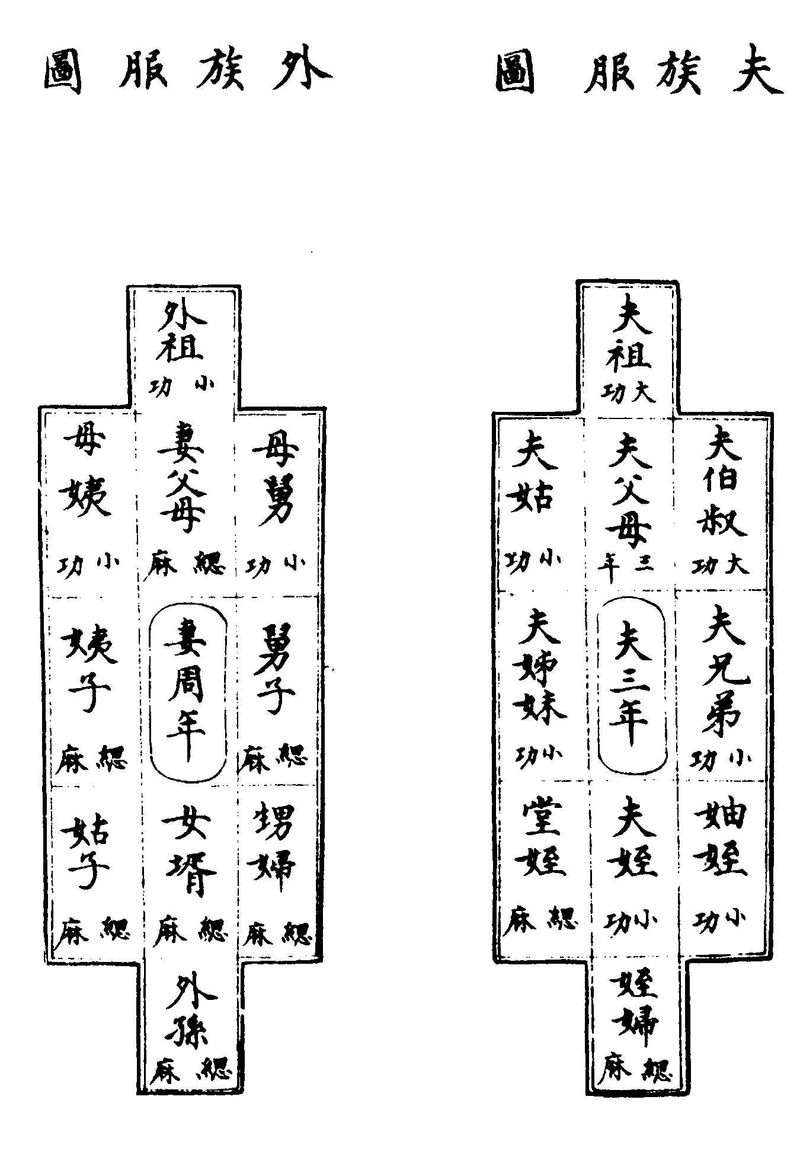 夫族服圖
夫祖
大功
夫伯叔
大功
夫父母
三年
夫姑
小功
夫兄弟
小功
夫三年
夫姊妹
小功
妯姪
小功
夫姪
小功
堂姪
緦麻
姪婦
緦麻
外族服圖
外祖
小功
母舅
小功
妻父母
緦麻
母姨
小功
舅子
緦麻
妻周年
姨子
緦麻
甥婦
緦麻
女壻
緦麻
姑子
緦麻
外孫
緦麻